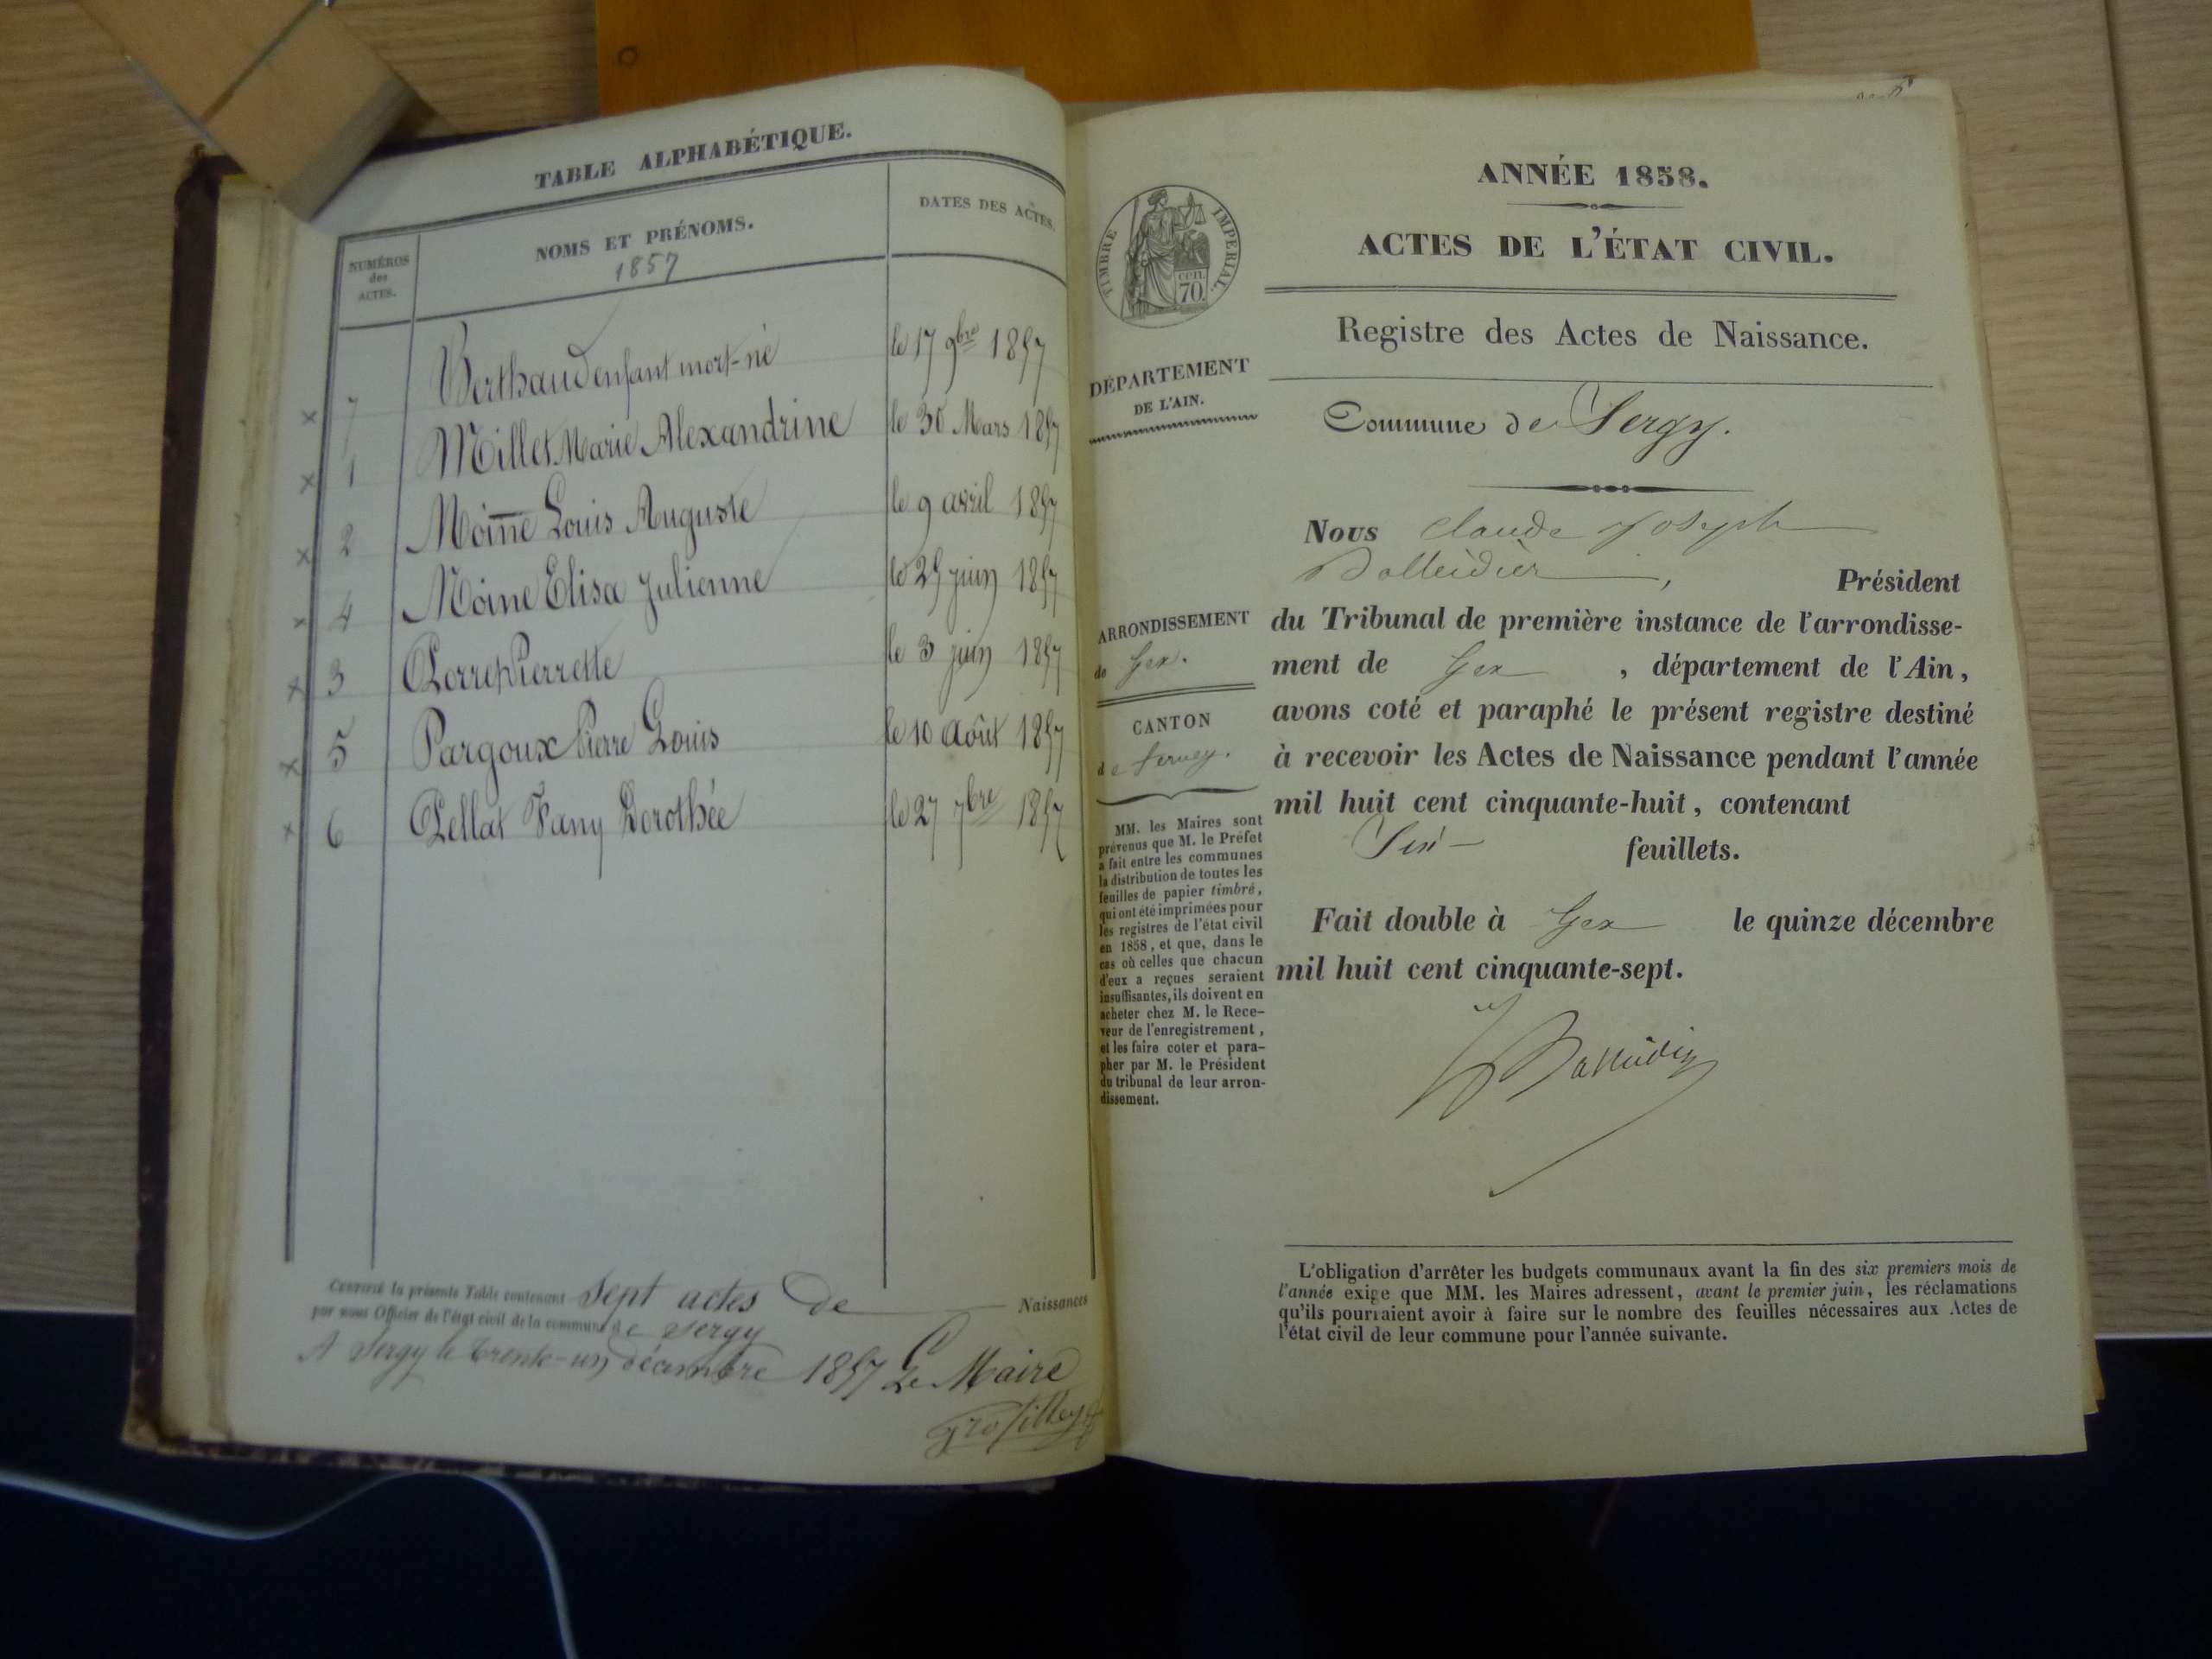 TABLE ALPHABÉTIQUE.
NUMÉROS
des
ACTES.
NOMS ET PRÉNOMS.
1857
DATES DES ACTES.
7 Berthaud enfant mort-né le 17 9bre 1857
1 Millet Marie Alexandrine le 30 Mars 1857
2 Moine Louis Auguste le 9 avril 1857
4 Moine Elisa Julienne le 25 juin 1857
3 Pierrette le 3 juin 1857
5 Pargoux Pierre Louis le 10 Août 1857
6 Pellat Fany Dorothée le 27 7bre 1857
CERTIFIÉ la présente Table contenant sept actes de Naissances
par nous Officier de l'état civil de la commune de Sergy
A Sergy le trente-un décembre 1857 Le Maire
TIMBRE IMPERIAL.
cen.
70.
DÉPARTEMENT
DE L'AIN.
ARRONDISSEMENT
de Gex.
CANTON
de Ferney.
MM. les Maires sont
prévenus que M. le Préfet
a fait entre les communes
la distribution de toutes les
feuilles de papier timbré,
qui ont été imprimées pour
les registres de l'état civil
en 1858, et que, dans le
cas où celles que chacun
d'eux a reçues seraient
insuffisantes, ils doivent en
acheter chez M. le Rece-
veur de l'enregistrement,
et les faire coter et para-
pher par M. le Président
du tribunal de leur arron-
dissement.
ANNÉE 1858.
ACTES DE L'ÉTAT CIVIL.
Registre des Actes de Naissance.
Commune de Sergy.
Nous Claude Joseph
Balleidier, Président
du Tribunal de première instance de l'arrondisse-
ment de Gex, département de l'Ain,
avons coté et paraphé le présent registre destiné
à recevoir les Actes de Naissance pendant l'année
mil huit cent cinquante-huit, contenant
Six feuillets.
Fait double à Gex le quinze décembre
mil huit cent cinquante-sept.
Balleidier
L'obligation d'arrêter les budgets communaux avant la fin des six premiers mois de
l'année exige que MM. les Maires adressent, avant le premier juin, les réclamations
qu'ils pourraient avoir à faire sur le nombre des feuilles nécessaires aux Actes de
l'état civil de leur commune pour l'année suivante.